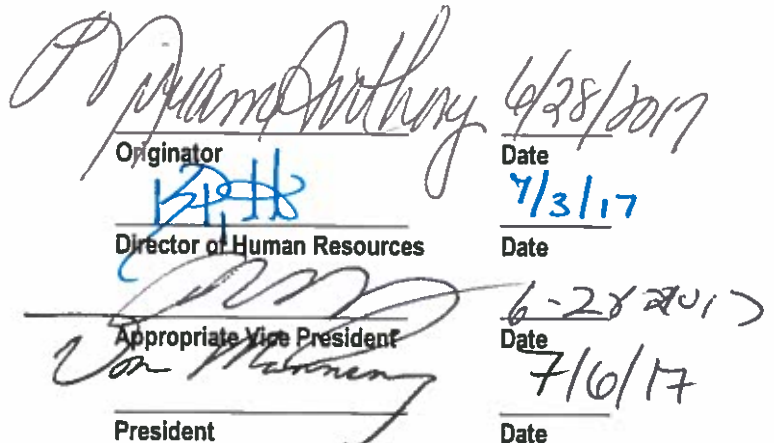 6/28/2017
Originator Date
7/3/17
Director of Human Resources Date
6-28 2017
Appropriate Vice President Date
Don 7/6/17
President Date